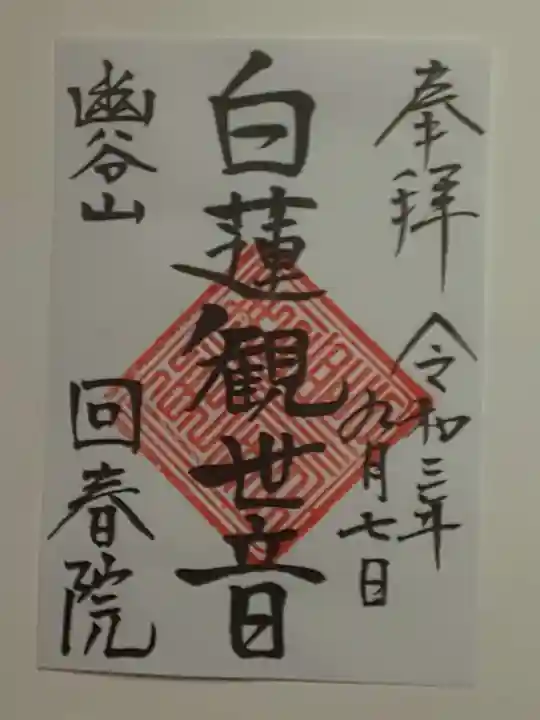 奉拝
令和三年
九月七日
白蓮観世音
幽谷山
回春院